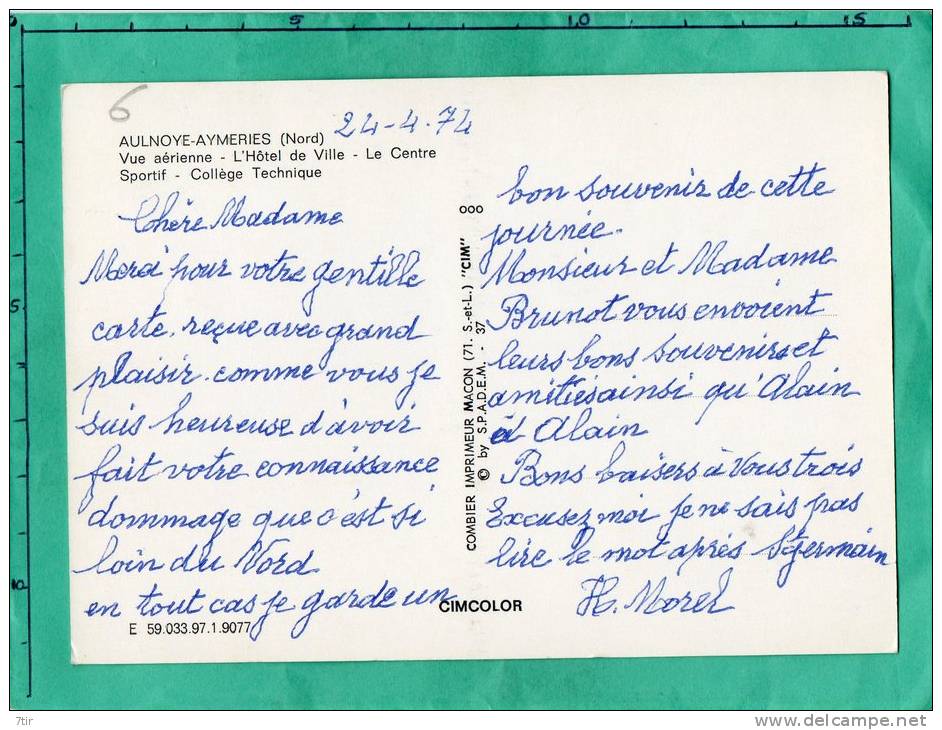 5
10
15
6
24-4-74
AULNOYE-AYMERIES (Nord)
Vue aérienne - L'Hôtel de Ville - Le Centre
Sportif - Collège Technique
Chère Madame
Merci pour votre gentille
carte, reçue avec grand
plaisir. comme vous je
suis heureuse d'avoir
fait votre connaissance
dommage que c'est si
loin du Nord
en tout cas je garde un
E 59.033.97.1.9077
CIMCOLOR
COMBIER IMPRIMEUR MACON (71. S.-et-L.) "CIM"
© by S.P.A.D.E.M. - 37
ooo
bon souvenir de cette
journée.
Monsieur et Madame
Brunot vous envoient
leurs bons souvenirs et
amitiés ainsi qu'Alain
à Alain
Bons baisers à Vous trois
Excusez moi je ne sais pas
lire le mot après St germain
H. Morel
5
10
7tir
delcampe.net